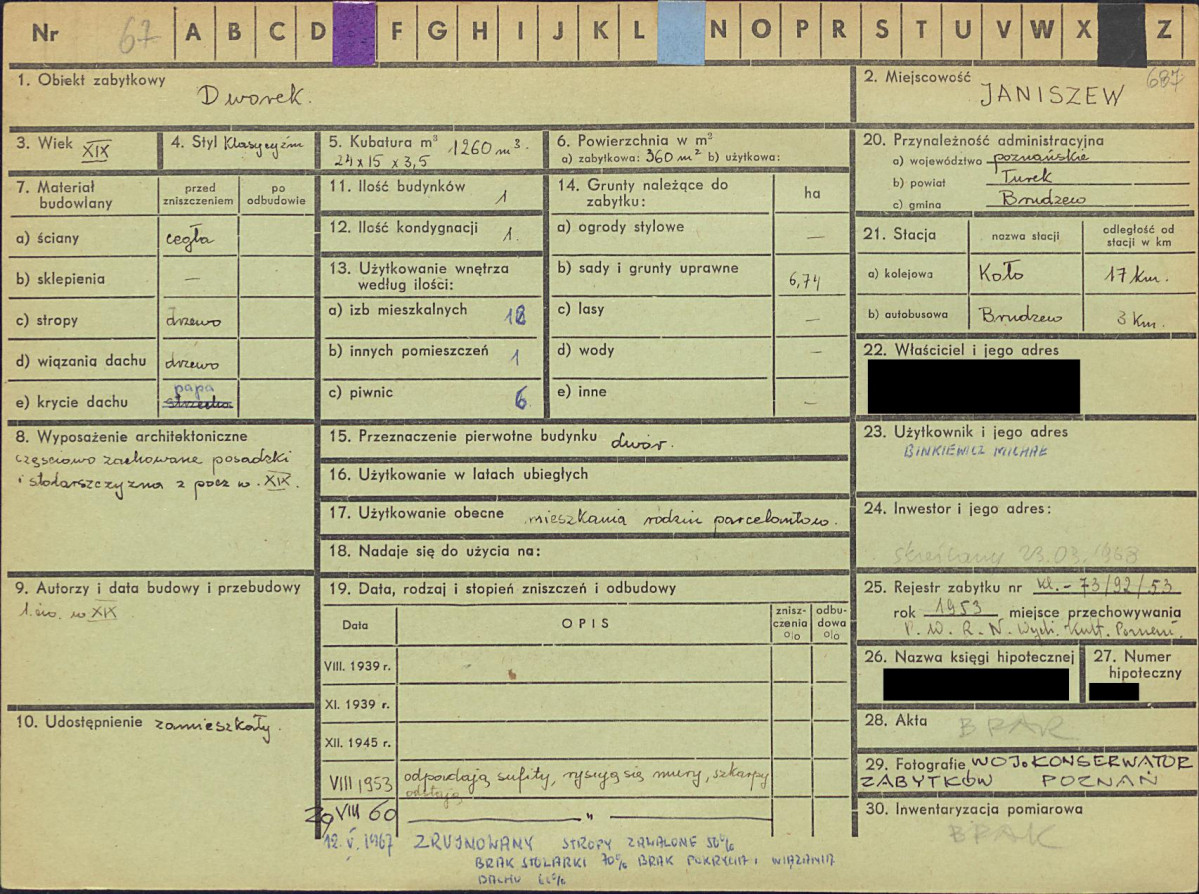 Nr 67 A B C D F G H I J K L N O P R S T U V W X Z
1. Obiekt zabytkowy
Dworek.
2. Miejscowość 687
JANISZEW
3. Wiek XIX
4. Styl Klasycyzm
5. Kubatura m³ 1260 m³.
24 x 15 x 3,5
6. Powierzchnia w m³
a) zabytkowa: 360 m² b) użytkowa:
7. Materiał budowlany
przed zniszczeniem
po odbudowie
a) ściany cegła
b) sklepienia —
c) stropy drzewo
d) wiązania dachu drzewo
papa
e) krycie dachu strzecha
8. Wyposażenie architektoniczne
częściowo zachowane posadzki
i stolarszczyzna z pocz w. XIX.
9. Autorzy i data budowy i przebudowy
1. ćw. w XIX
10. Udostępnienie zamieszkały.
11. Ilość budynków 1
12. Ilość kondygnacji 1.
13. Użytkowanie wnętrza
według ilości:
a) izb mieszkalnych
b) innych pomieszczeń 1
c) piwnic 6
14. Grunty należące do
zabytku:
ha
a) ogrody stylowe —
b) sady i grunty uprawne 6,74
c) lasy —
d) wody —
e) inne —
15. Przeznaczenie pierwotne budynku dwór.
16. Użytkowanie w latach ubiegłych
17. Użytkowanie obecne mieszkania rodzin parcelantów.
18. Nadaje się do użycia na:
19. Data, rodzaj i stopień zniszczeń i odbudowy
Data
OPIS
znisz-
czenia
%
odbu-
dowa
%
VIII. 1939 r.
XI. 1939 r.
XII. 1945 r.
VIII 1953 odpadają sufity, rysują się mury, szkarpy
odstają
29 VIII 60 — " —
12. V. 1967 ZRUJNOWANY STROPY ZAWALONE 50%
BRAK STOLARKI 70% BRAK POKRYCIA I WIĄZANIA
DACHU
20. Przynależność administracyjna
a) województwo poznańskie
b) powiat Turek
c) gmina Brudzew
21. Stacja
nazwa stacji
odległość od
stacji w km
a) kolejowa Koło 17 km.
b) autobusowa Brudzew 3 km.
22. Właściciel i jego adres
23. Użytkownik i jego adres
BINKIEWICZ MICHAŁ
24. Inwestor i jego adres:
skreślony 23.03.1968
25. Rejestr zabytku nr kl. - 73/92/53
rok 1953 miejsce przechowywania
P. W. R. N. Wydz. Kult. Poznań.
26. Nazwa księgi hipotecznej
27. Numer
hipoteczny
28. Akta BRAK
29. Fotografie WOJ. KONSERWATOR
ZABYTKÓW POZNAŃ
30. Inwentaryzacja pomiarowa
BRAK